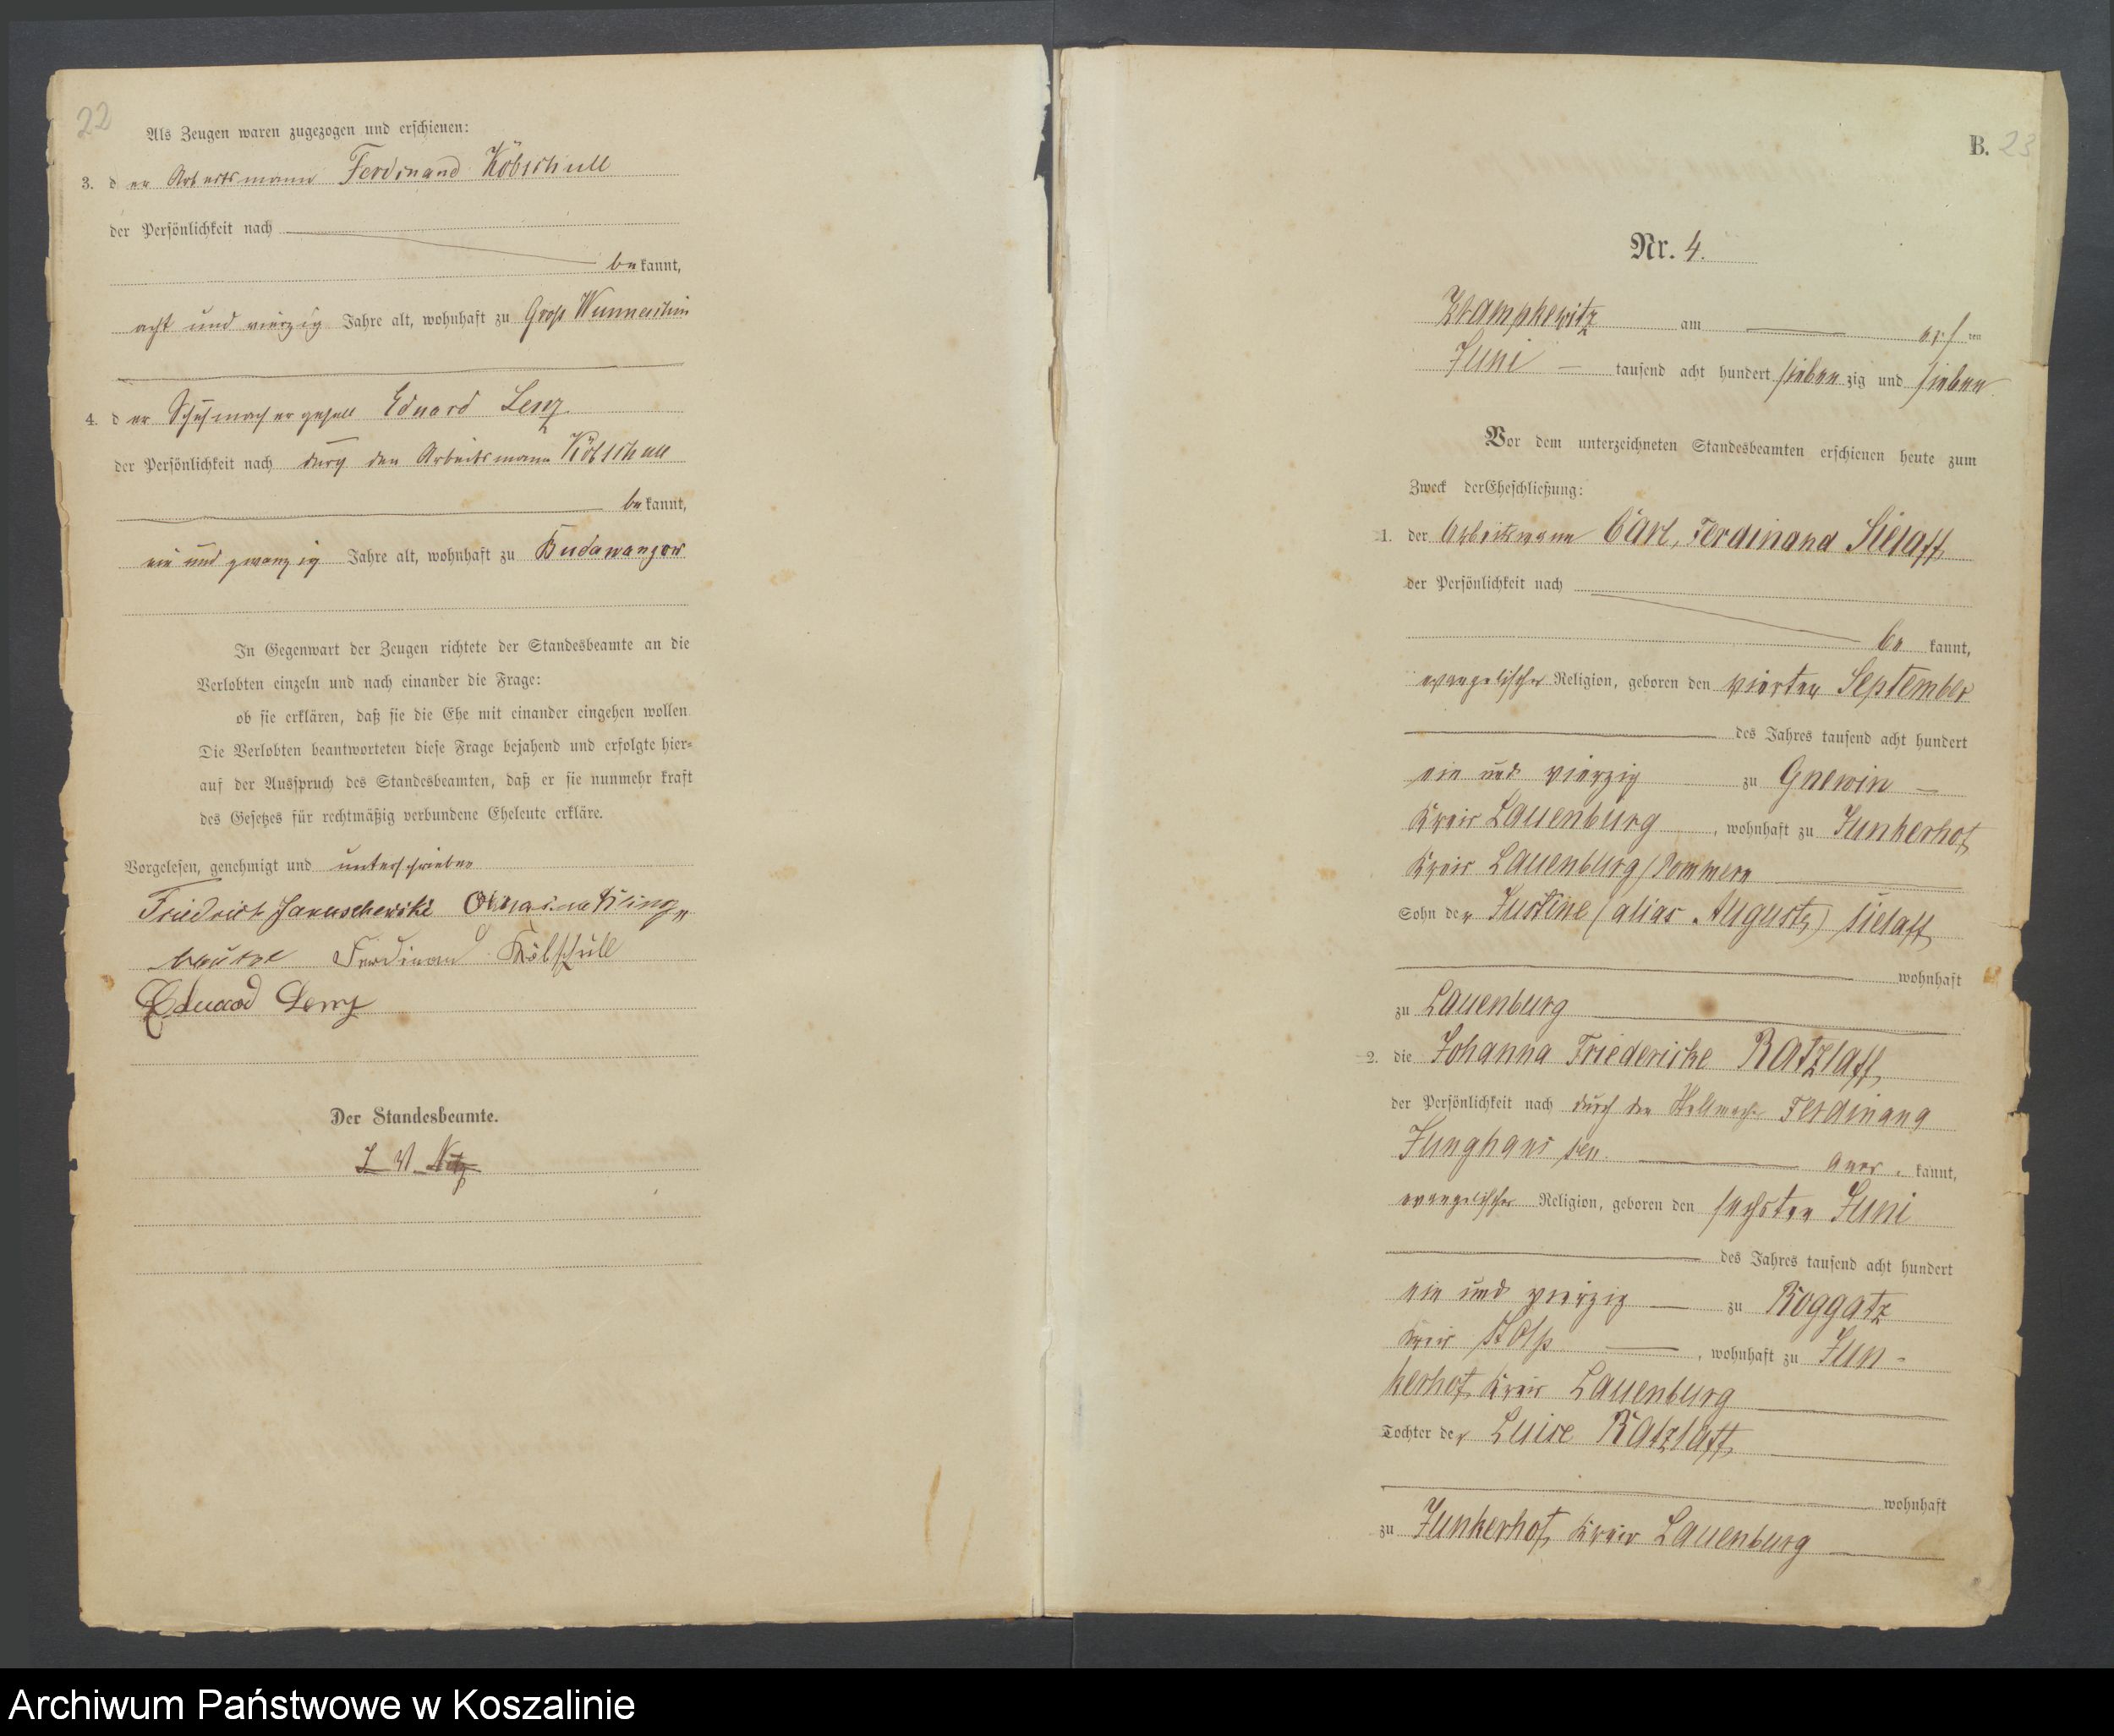 22
Als Zeugen waren zugezogen und erschienen:
3. der Arbeitsmann Ferdinand Köbschull
der Persönlichkeit nach
bekannt,
acht und vierzig Jahre alt, wohnhaft zu Groß Wunneschin
4. der Schuhmachergesell Eduard Lenz
der Persönlichkeit nach durch den Arbeitsmann Köbschull
bekannt,
ein und zwanzig Jahre alt, wohnhaft zu
In Gegenwart der Zeugen richtete der Standesbeamte an die
Verlobten einzeln und nach einander die Frage:
ob sie erklären, daß sie die Ehe mit einander eingehen wollen
Die Verlobten beantworteten diese Frage bejahend und erfolgte hier-
auf der Ausspruch des Standesbeamten, daß er sie nunmehr kraft
des Gesetzes für rechtmäßig verbundene Eheleute erkläre.
Vorgelesen, genehmigt und unterschrieben
Friedrich
Ferdinand Köbschull
Eduard Lenz
Der Standesbeamte.
B. 23
Nr. 4.
am ersten
Juni tausend acht hundert siebenzig und sieben
Vor dem unterzeichneten Standesbeamten erschienen heute zum
Zweck der Eheschließung:
1. der Arbeitsmann Carl, Ferdinand Sielaff
der Persönlichkeit nach
bekannt,
evangelischer Religion, geboren den vierten September
des Jahres tausend acht hundert
ein und vierzig zu Gnewin
Kreis Lauenburg, wohnhaft zu Junkerhof
Kreis Lauenburg / Pommern
Sohn der Justine (alias Auguste) Sielaff
wohnhaft
zu Lauenburg
2. die Johanna Friedericke Ratzlaff
der Persönlichkeit nach durch den Ferdinand
Junghans sen. aner kannt,
evangelischer Religion, geboren den sechsten Juni
des Jahres tausend acht hundert
ein und vierzig zu Roggatz
Kreis Stolp, wohnhaft zu Jun-
kerhof Kreis Lauenburg
Tochter der Luise Ratzlaff
wohnhaft
zu Junkerhof Kreis Lauenburg
Archiwum Państwowe w Koszalinie